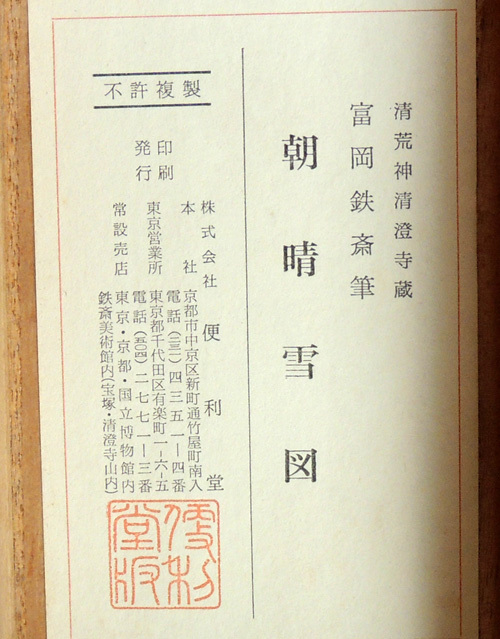 清荒神清澄寺蔵
富岡鉄斎筆
朝晴雪図
不許複製
印刷
発行
株式会社 便利堂
本社 京都市中京区新町通竹屋町南入
電話(二三一)四三五一―四番
東京営業所 東京都千代田区有楽町一-六-五
電話(五〇四)二七七一―三番
常設売店 東京・京都・国立博物館内
鉄斎美術館内(宝塚・清澄寺山内)
便利堂版